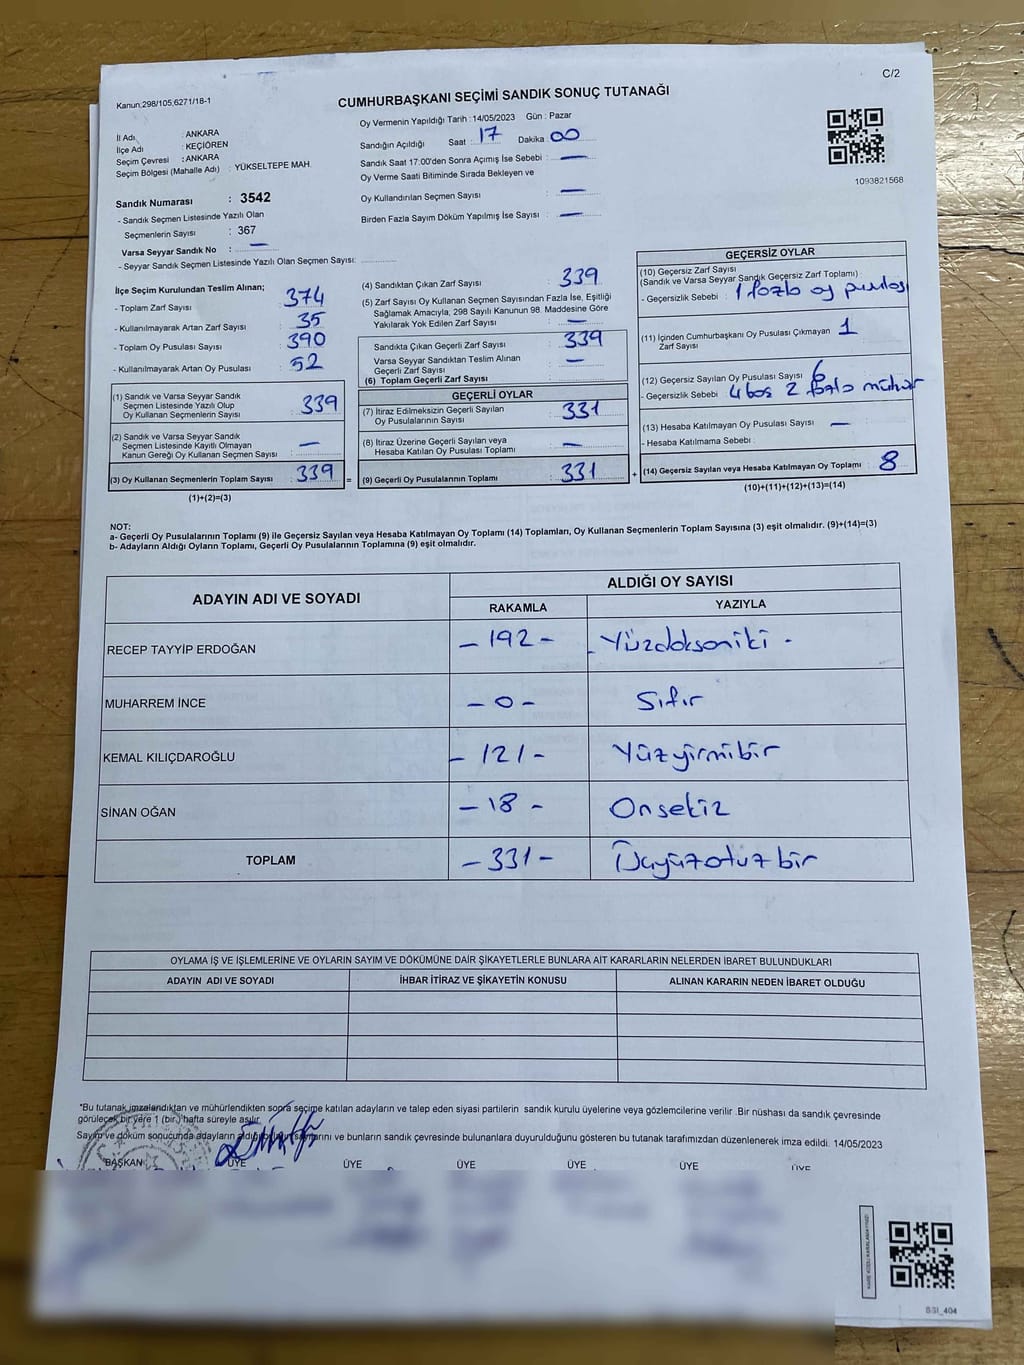 C/2
Kanun:298/105,6271/18-1
CUMHURBAŞKANI SEÇİMİ SANDIK SONUÇ TUTANAĞI
İl Adı : ANKARA
İlçe Adı : KEÇİÖREN
Seçim Çevresi : ANKARA
Seçim Bölgesi (Mahalle Adı) : YÜKSELTEPE MAH.
Sandık Numarası : 3542
- Sandık Seçmen Listesinde Yazılı Olan
Seçmenlerin Sayısı : 367
Varsa Seyyar Sandık No : —
- Seyyar Sandık Seçmen Listesinde Yazılı Olan Seçmen Sayısı:
Oy Vermenin Yapıldığı Tarih : 14/05/2023 Gün : Pazar
Sandığın Açıldığı Saat : 17 Dakika : 00
Sandık Saat 17:00'den Sonra Açımış İse Sebebi : —
Oy Verme Saati Bitiminde Sırada Bekleyen ve
Oy Kullandırılan Seçmen Sayısı : —
Birden Fazla Sayım Döküm Yapılmış İse Sayısı : —
1093821568
İlçe Seçim Kurulundan Teslim Alınan;
- Toplam Zarf Sayısı : 374
- Kullanılmayarak Artan Zarf Sayısı : 35
- Toplam Oy Pusulası Sayısı : 390
- Kullanılmayarak Artan Oy Pusulası : 52
(1) Sandık ve Varsa Seyyar Sandık
Seçmen Listesinde Yazılı Olup
Oy Kullanan Seçmenlerin Sayısı : 339
(2) Sandık ve Varsa Seyyar Sandık
Seçmen Listesinde Kayıtlı Olmayan
Kanun Gereği Oy Kullanan Seçmen Sayısı : —
(3) Oy Kullanan Seçmenlerin Toplam Sayısı : 339 =
(1)+(2)=(3)
(4) Sandıktan Çıkan Zarf Sayısı : 339
(5) Zarf Sayısı Oy Kullanan Seçmen Sayısından Fazla İse, Eşitliği
Sağlamak Amacıyla, 298 Sayılı Kanunun 98. Maddesine Göre
Yakılarak Yok Edilen Zarf Sayısı : —
Sandıkta Çıkan Geçerli Zarf Sayısı : 339
Varsa Seyyar Sandıktan Teslim Alınan
Geçerli Zarf Sayısı : —
(6) Toplam Geçerli Zarf Sayısı :
GEÇERLİ OYLAR
(7) İtiraz Edilmeksizin Geçerli Sayılan
Oy Pusulalarının Sayısı : 331
(8) İtiraz Üzerine Geçerli Sayılan veya
Hesaba Katılan Oy Pusulası Toplamı : —
(9) Geçerli Oy Pusulalarının Toplamı : 331 +
GEÇERSİZ OYLAR
(10) Geçersiz Zarf Sayısı
(Sandık ve Varsa Seyyar Sandık Geçersiz Zarf Toplamı) :
- Geçersizlik Sebebi : 1 fazla oy pusulası
(11) İçinden Cumhurbaşkanı Oy Pusulası Çıkmayan : 1
Zarf Sayısı
(12) Geçersiz Sayılan Oy Pusulası Sayısı : 6
- Geçersizlik Sebebi : 4 boş 2 fazla mühür
(13) Hesaba Katılmayan Oy Pusulası Sayısı : —
- Hesaba Katılmama Sebebi :
(14) Geçersiz Sayılan veya Hesaba Katılmayan Oy Toplamı : 8
(10)+(11)+(12)+(13)=(14)
NOT:
a- Geçerli Oy Pusulalarının Toplamı (9) ile Geçersiz Sayılan veya Hesaba Katılmayan Oy Toplamı (14) Toplamları, Oy Kullanan Seçmenlerin Toplam Sayısına (3) eşit olmalıdır. (9)+(14)=(3)
b- Adayların Aldığı Oyların Toplamı, Geçerli Oy Pusulalarının Toplamına (9) eşit olmalıdır.
ADAYIN ADI VE SOYADI ALDIĞI OY SAYISI
RAKAMLA YAZIYLA
RECEP TAYYİP ERDOĞAN - 192 - - Yüzdoksaniki -
MUHARREM İNCE - 0 - Sıfır
KEMAL KILIÇDAROĞLU - 121 - Yüzyirmibir
SİNAN OĞAN - 18 - Onsekiz
TOPLAM - 331 - Üçyüzotuzbir
OYLAMA İŞ VE İŞLEMLERİNE VE OYLARIN SAYIM VE DÖKÜMÜNE DAİR ŞİKAYETLERLE BUNLARA AİT KARARLARIN NELERDEN İBARET BULUNDUKLARI
ADAYIN ADI VE SOYADI İHBAR İTİRAZ VE ŞİKAYETİN KONUSU ALINAN KARARIN NEDEN İBARET OLDUĞU
*Bu tutanak imzalandıktan ve mühürlendikten sopra seçime katılan adayların ve talep eden siyasi partilerin sandık kurulu üyelerine veya gözlemcilerine verilir .Bir nüshası da sandık çevresinde
görülecek bir yere 1 (bir) hafta süreyle asılır.
Sayım ve döküm sonucunda adayların aldığı sayılarını ve bunların sandık çevresinde bulunanlara duyurulduğunu gösteren bu tutanak tarafımızdan düzenlenerek imza edildi. 14/05/2023
BAŞKAN ÜYE ÜYE ÜYE ÜYE ÜYE ÜYE
BSI_404